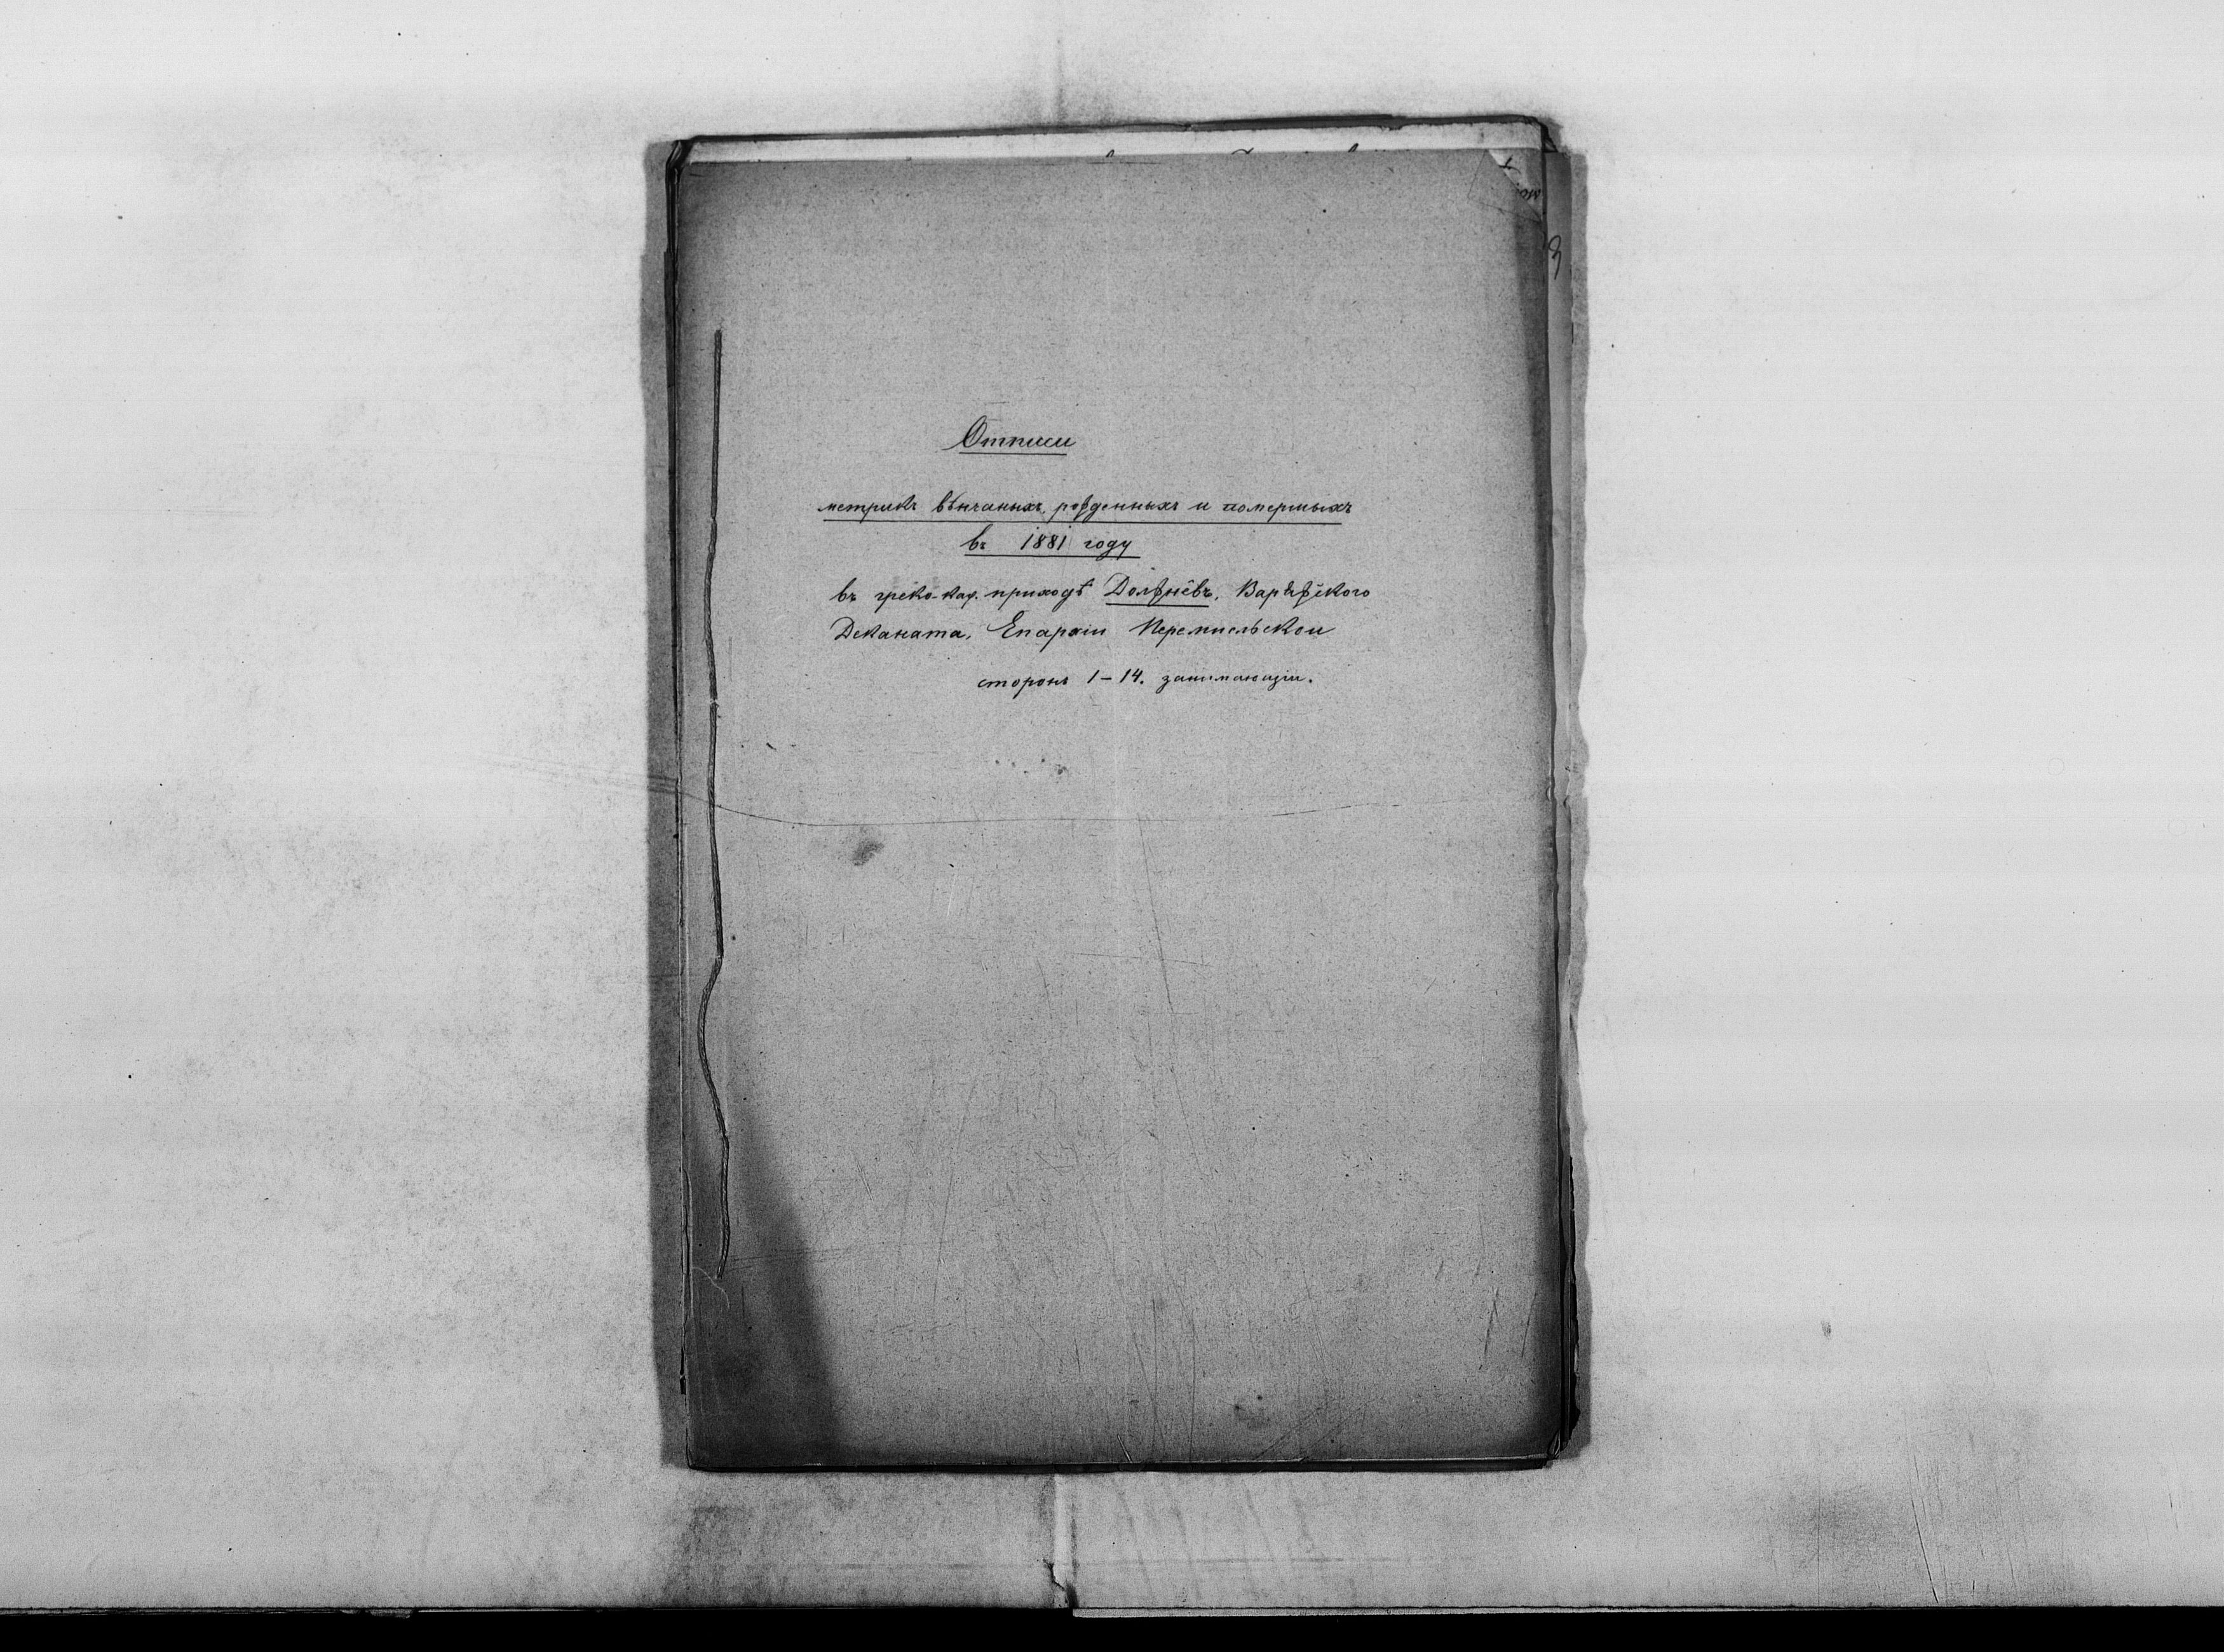 Отписи
метрикъ вѣнчаныхъ, рожденныхъ и помершыхъ
въ 1881 году
въ греко-каѳ. приходѣ Должнёвъ, Варяжского
Деканата, Епархіи Перемысльскои
сторонъ 1–14. занимающіи.